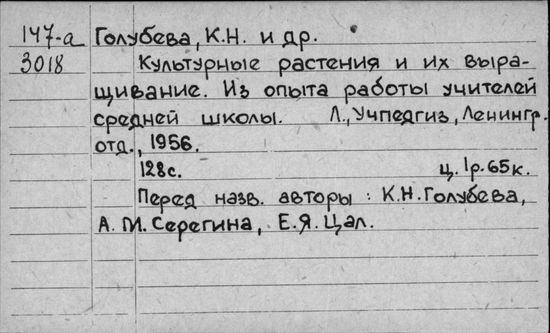 147-а Голубева, К.Н. и др.
3018 Культурные растения и их выра-
щивание. Из опыта работы учителей
средней школы. Л., Учпедгиз, Ленингр.
отд., 1956.
128с. ц. 1р. 65к.
Перед назв. авторы : К.Н. Голубева,
А.М. Серегина, Е.Я. Цал.